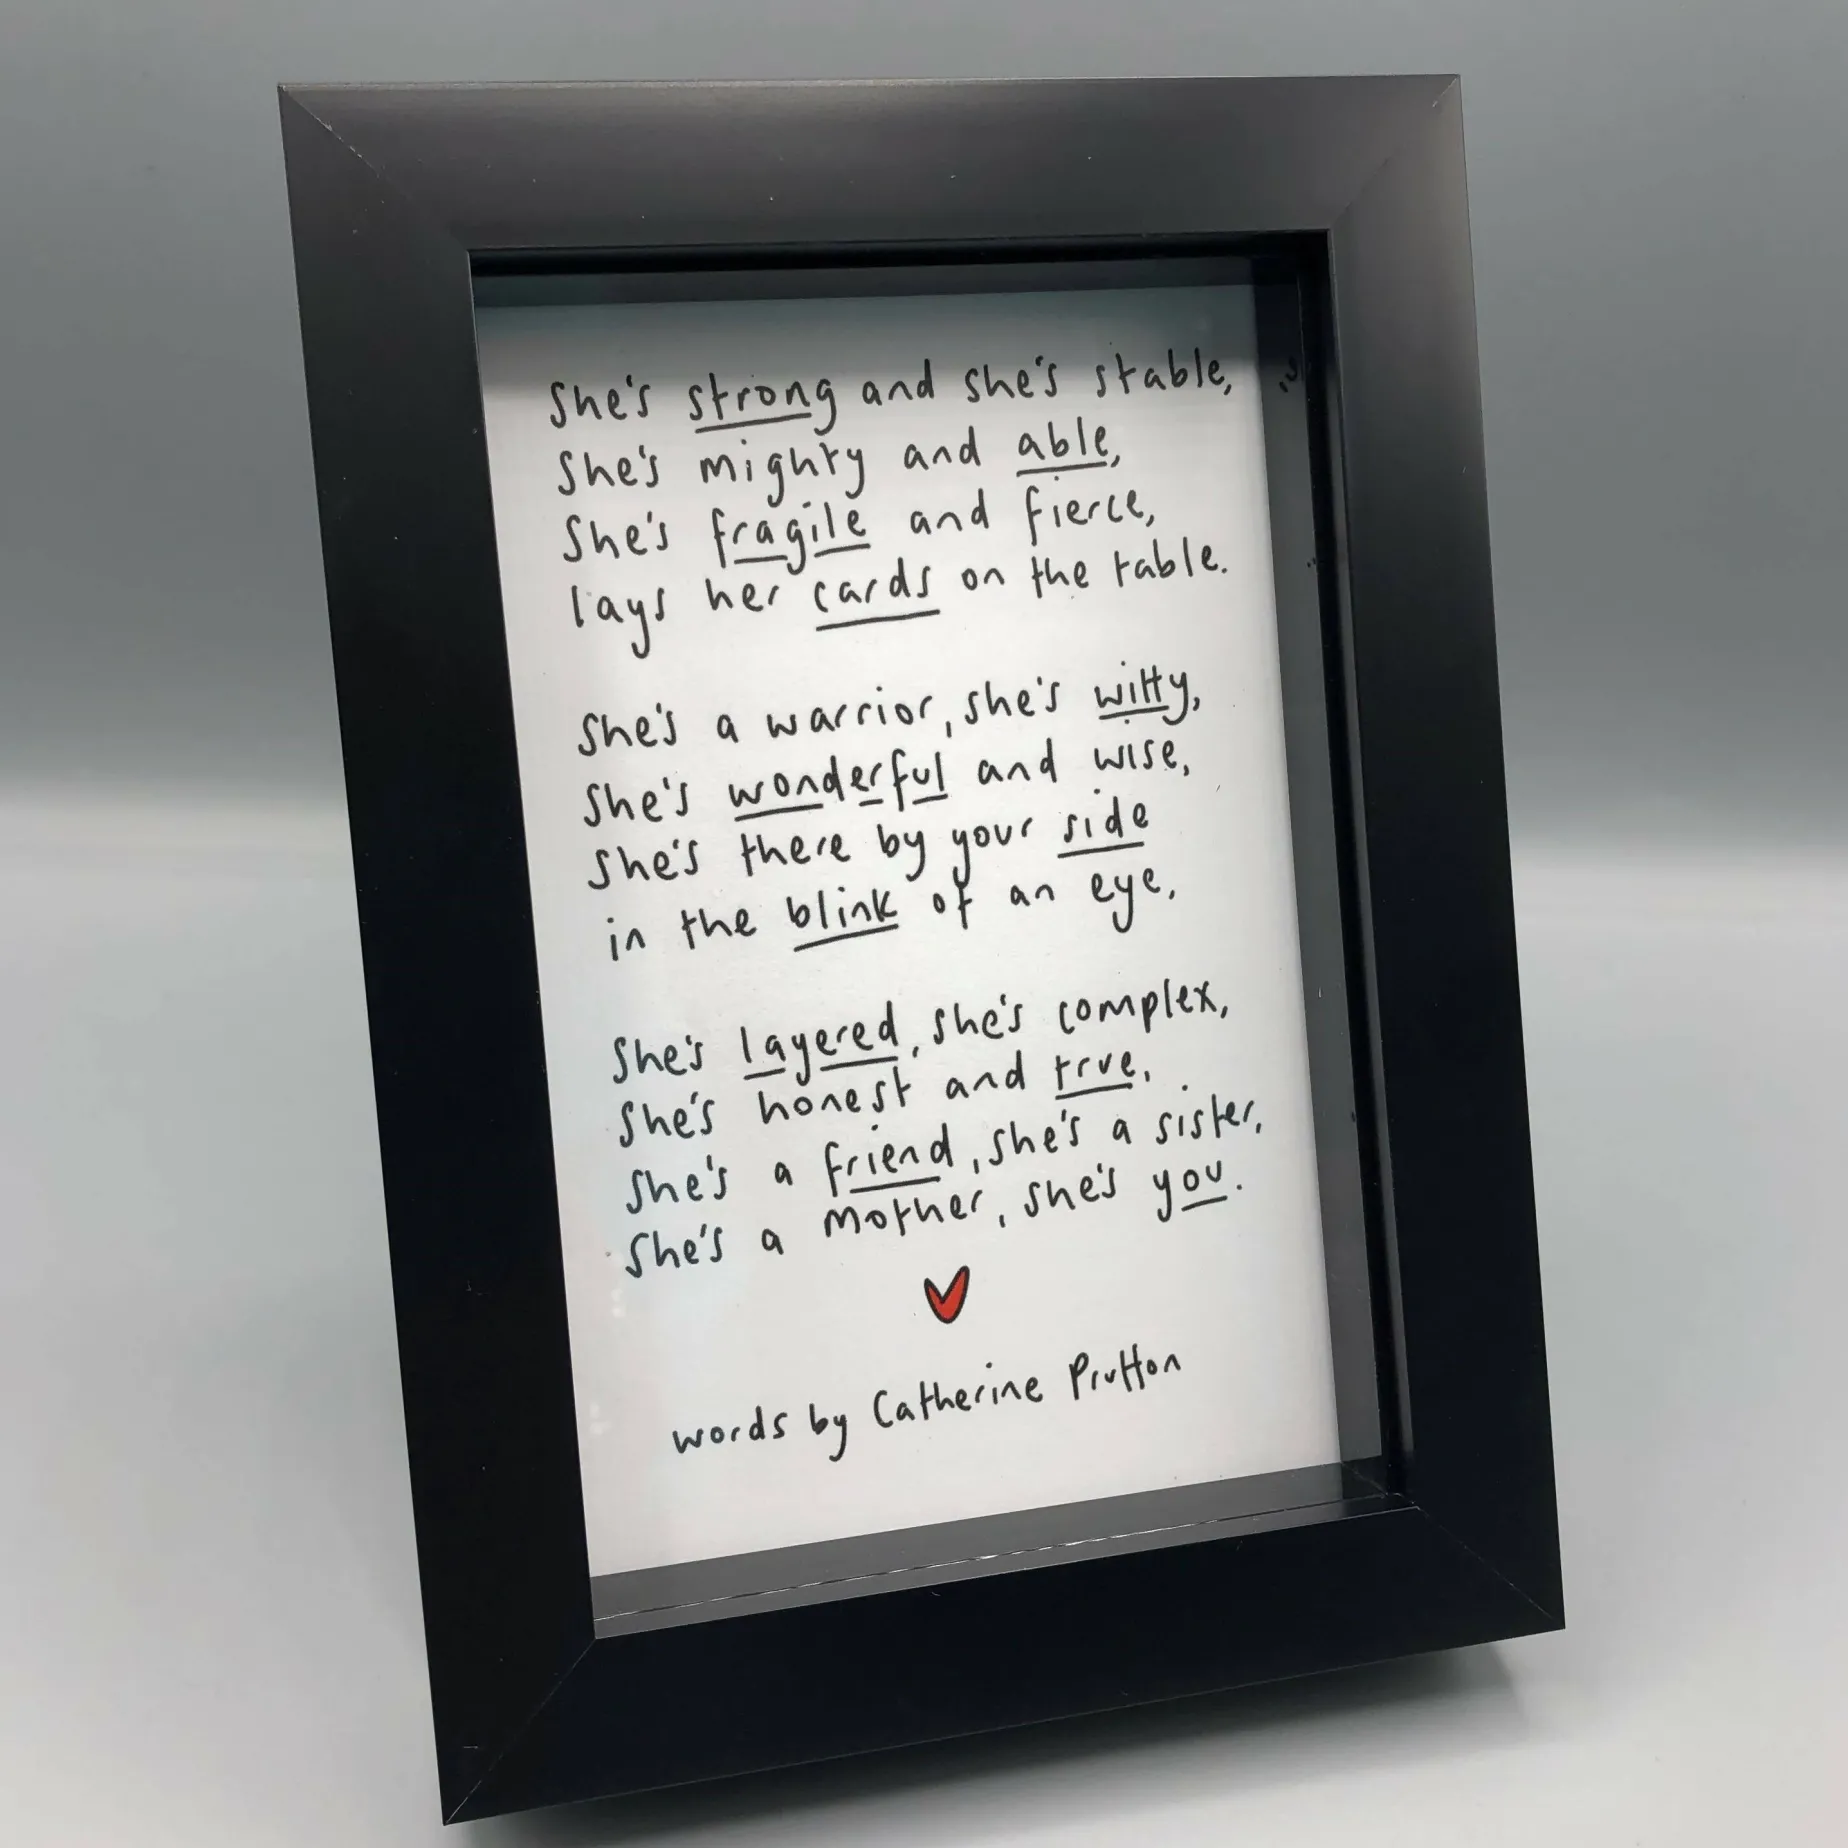 She's strong and she's stable,
She's mighty and able,
She's fragile and fierce,
lays her cards on the table.
She's a warrior, she's witty,
She's wonderful and wise,
She's there by your side
in the blink of an eye.
She's layered, she's complex,
She's honest and true.
She's a friend, she's a sister,
She's a mother, she's you.
words by Catherine Prutton